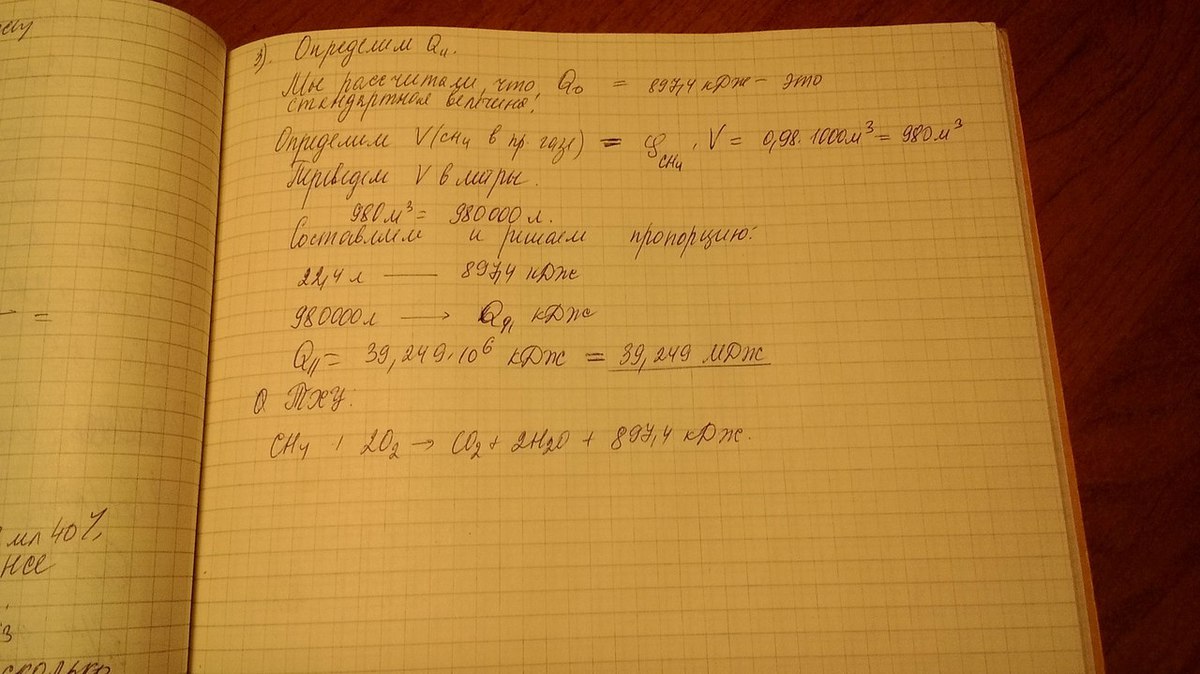 мл 40%
3). Определим Q п.
Мы рассчитали, что Q₀ = 897,4 кДж – это
стандартная величина!
Определим V(CH₄ в пр. газе) = φ CH₄ · V = 0,98 · 1000 м³ = 980 м³
Переведем V в литры.
980 м³ = 980000 л.
Составляем и решаем пропорцию:
22,4 л —— 897,4 кДж
980000 л —→ Qп кДж
Qп = 39,249·10⁶ кДж = 39,249 МДж
О ТХУ:
CH₄ + 2O₂ → CO₂ + 2H₂O + 897,4 кДж.